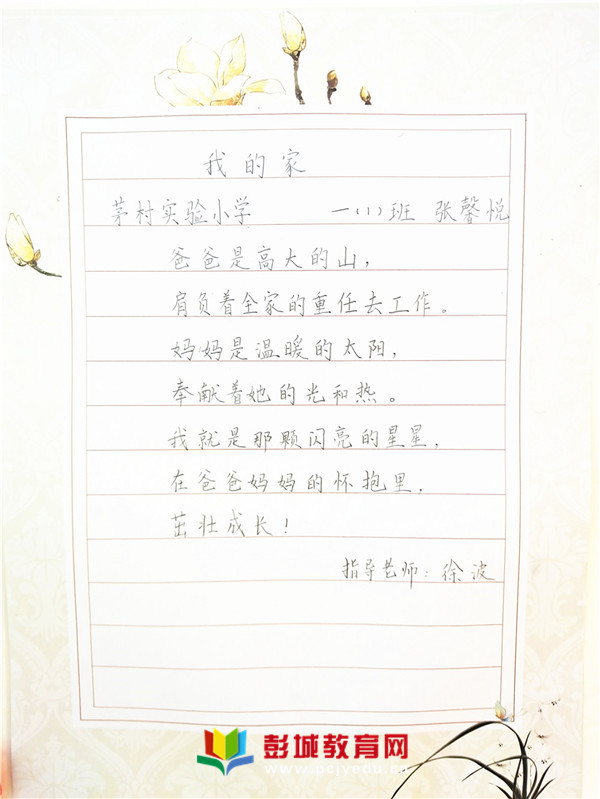 我的家
茅村实验小学 一(1)班 张馨悦
爸爸是高大的山，
肩负着全家的重任去工作。
妈妈是温暖的太阳，
奉献着她的光和热。
我就是那颗闪亮的星星，
在爸爸妈妈的怀抱里，
茁壮成长！
指导老师：徐波
彭城教育网
www.pcjyedu.cn